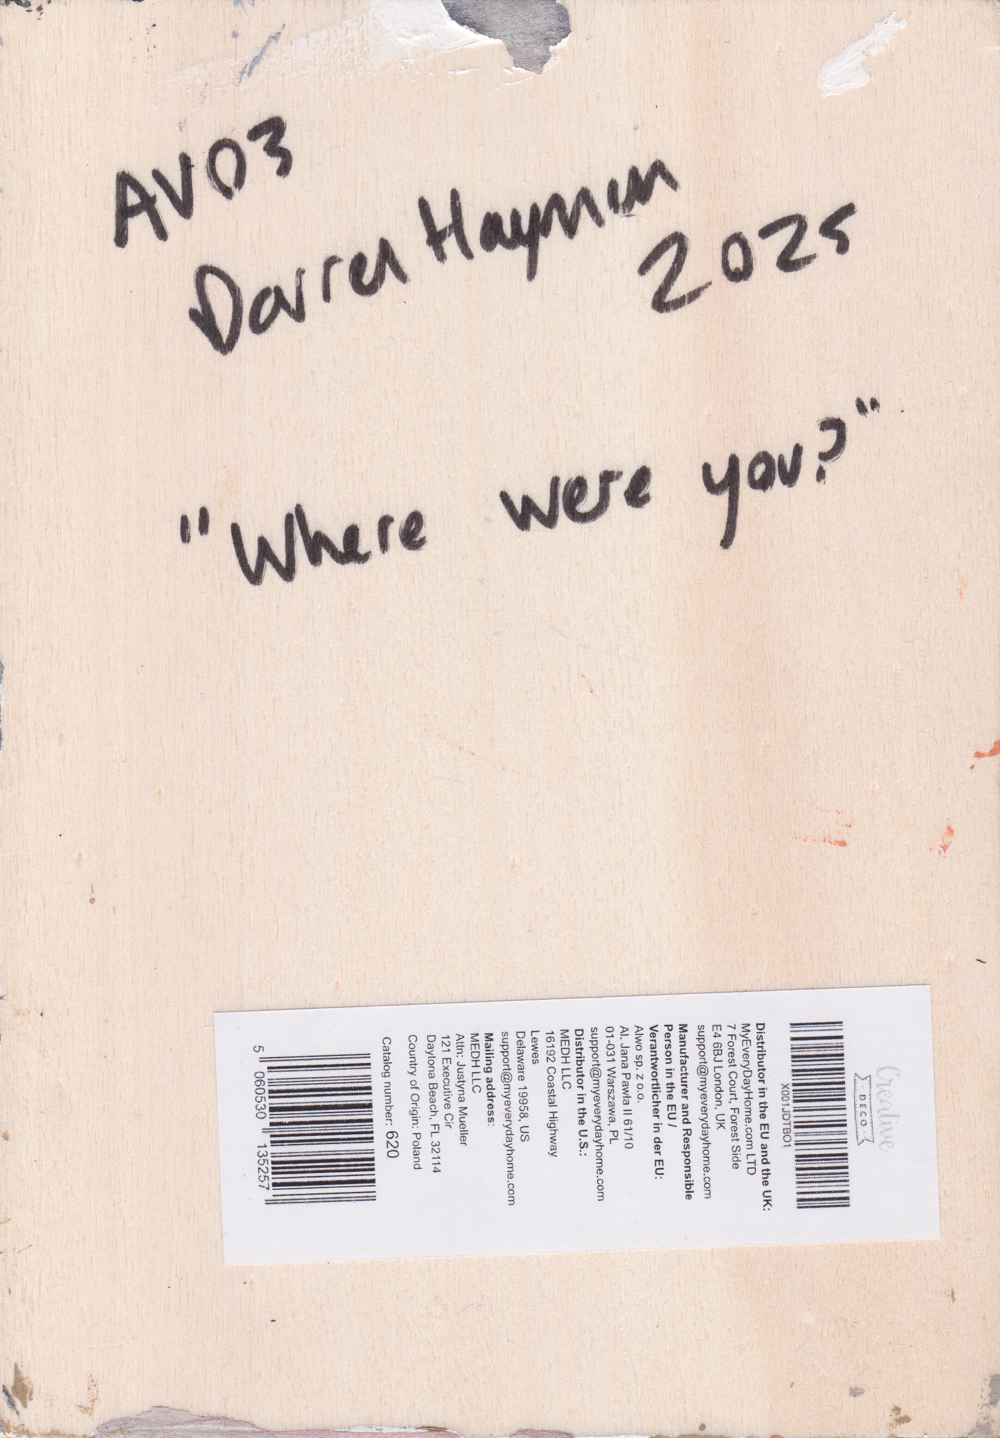 AV03
Darren Hayman
2025
"Where were you?"
Creative
DECO
X001JDTBO1
Distributor in the EU and the UK:
MyEveryDayHome.com LTD
7 Forest Court, Forest Side
E4 6BJ London, UK
support@myeverydayhome.com
Manufacturer and Responsible
Person in the EU /
Verantwortlicher in der EU:
Alwo sp. z o.o.
Al. Jana Pawla II 61/10
01-031 Warszawa, PL
support@myeverydayhome.com
Distributor in the U.S.:
MEDH LLC
16192 Coastal Highway
Lewes
Delaware 19958, US
support@myeverydayhome.com
Mailing address:
MEDH LLC
Attn: Justyna Mueller
121 Executive Cir
Daytona Beach, FL 32114
Country of Origin: Poland
Catalog number: 620
5 060530 135257